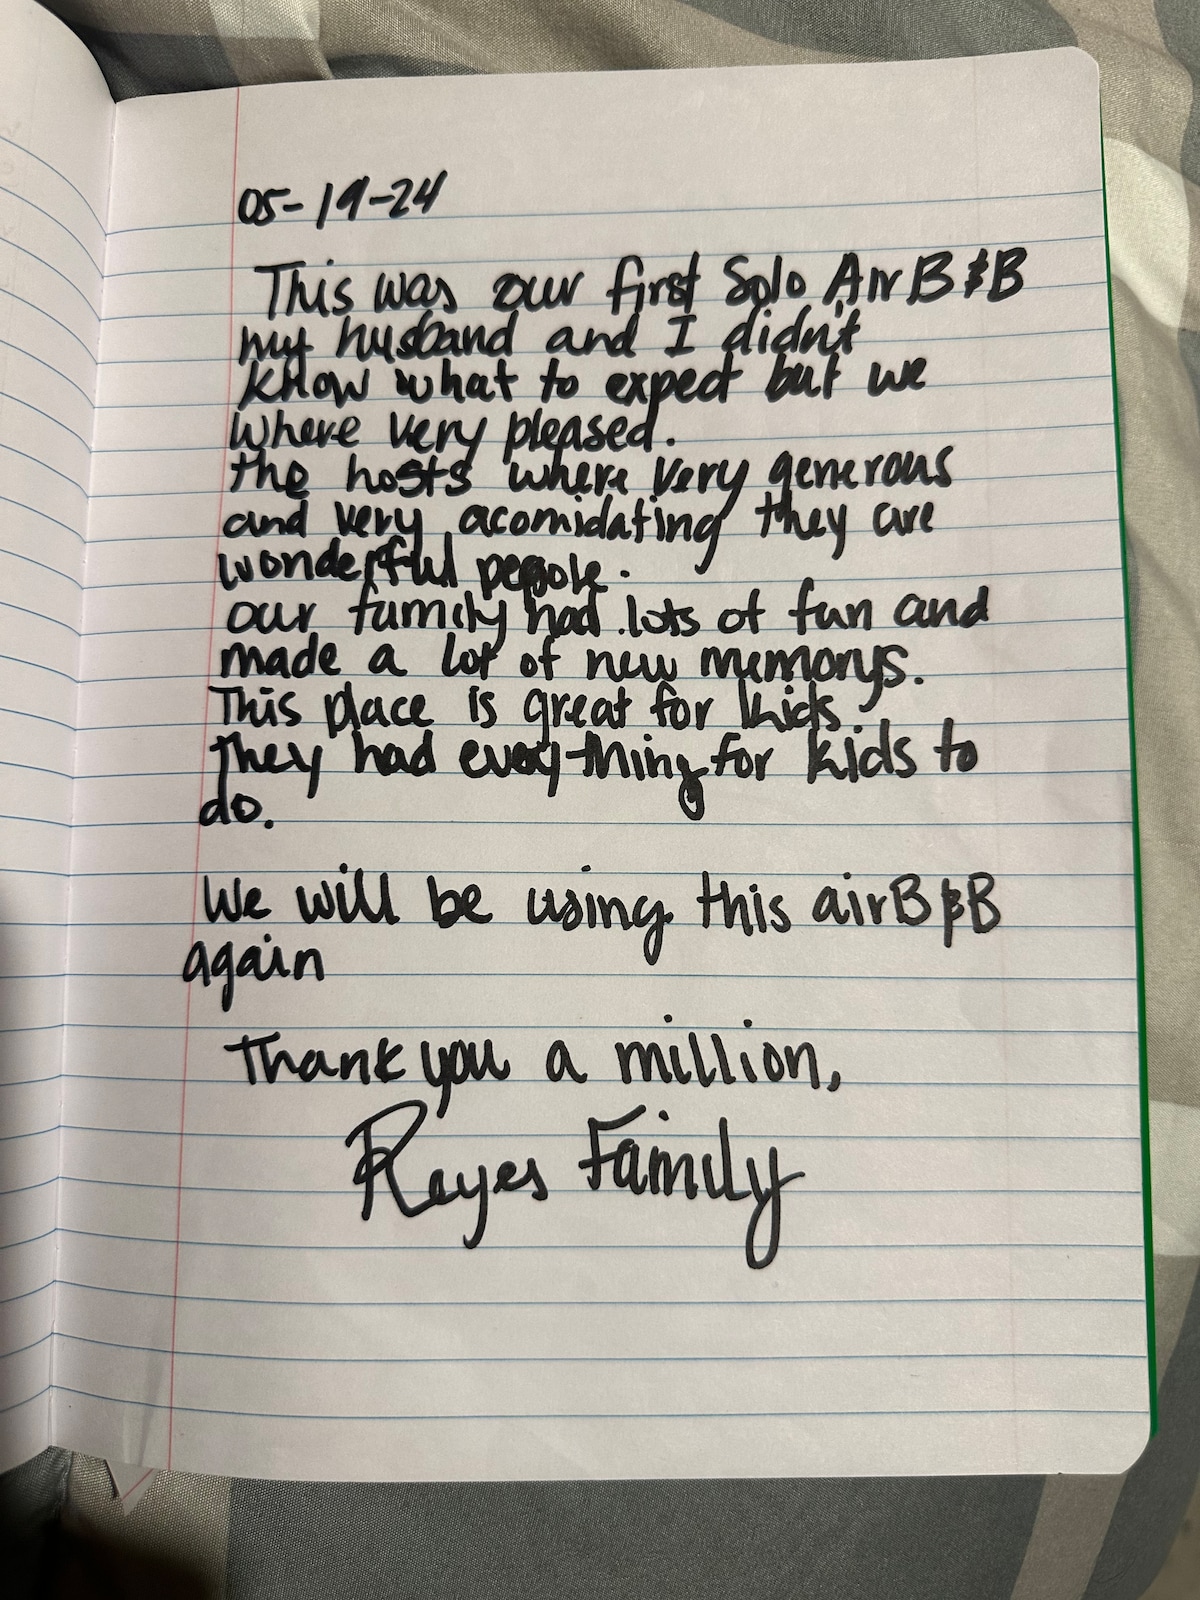 05-19-24
This was our first Solo Air B&B
my husband and I didn't
know what to expect but we
where very pleased.
the hosts where very generous
and very acomidating they are
wonderful people.
our family had lots of fun and
made a lot of new memorys.
This place is great for kids.
They had everything for kids to
do.
We will be using this airB&B
again
Thank you a million,
Reyes Family